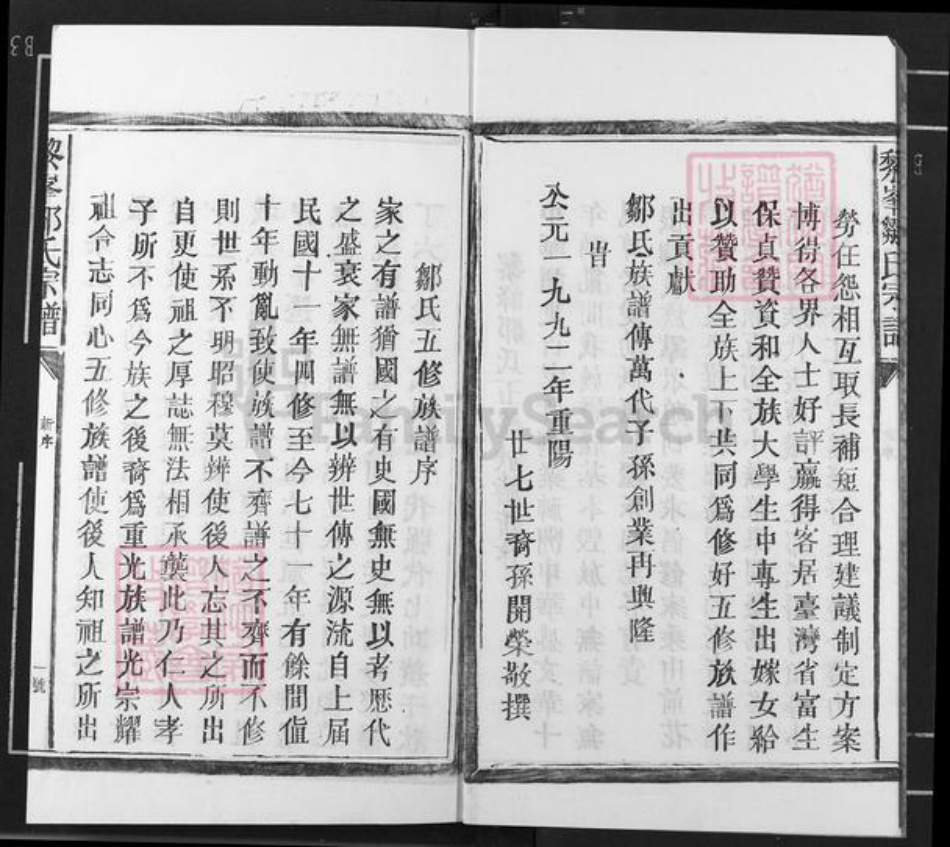 勞任怨相互取長補短合理建議制定方案
博得各界人士好評贏得客居臺灣省富生
保貞贊資和全族大學生中專生出嫁女給
以贊助全族上下共同爲修好五修族譜作
出貢獻
鄒氏族譜傳萬代子孫創業再興隆
旹
公元一九九二年重陽
廿七世裔孫開榮敬撰
鄒氏五修族譜序
家之有譜猶國之有史國無史無以考歷代
之盛衰家無譜無以辨世傳之源流自上屆
民國十一年四修至今七十一年有餘間值
十年動亂致使族譜不齊譜之不齊而不修
則世系不明昭穆莫辨使後人忘其之所出
自更使祖之厚誌無法相承龔此乃仁人孝
子所不爲今族之後裔爲重光族譜光宗耀
祖合志同心五修族譜使後人知祖之所出
黎峯鄒氏宗譜
新序
一號
FamilySearch